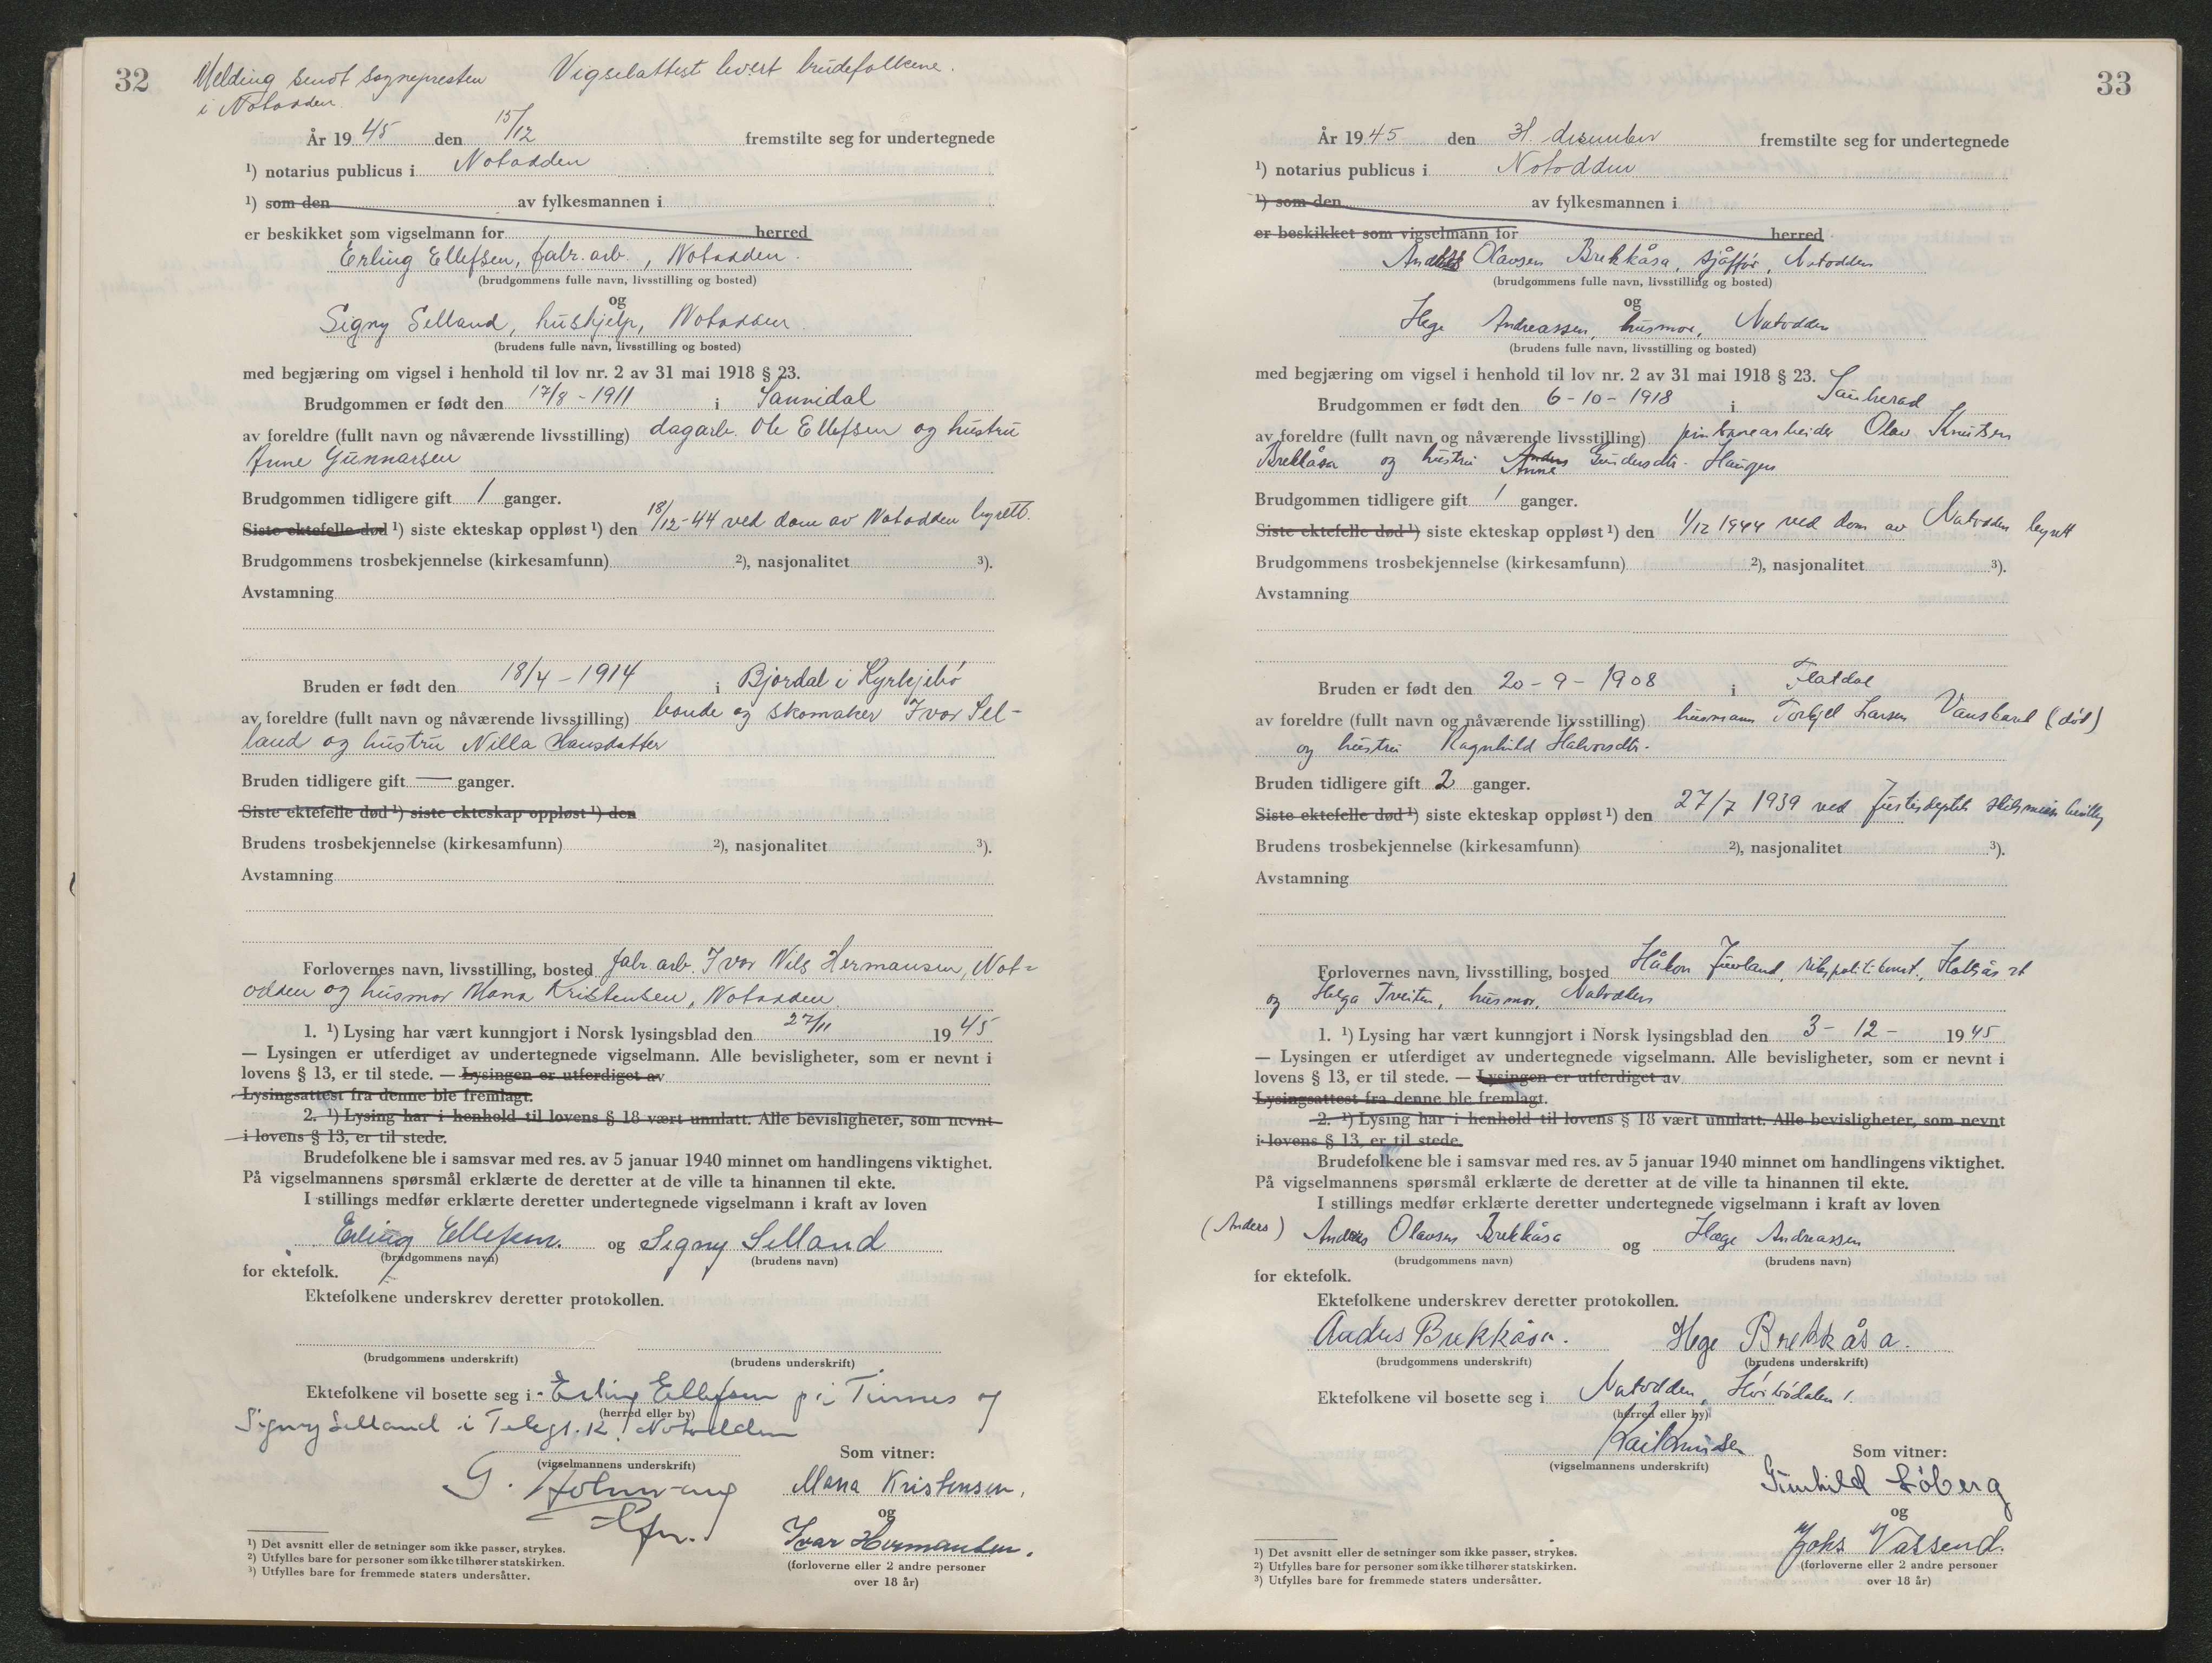 32
Melding sendt sognepresten Vigselattest levert brudefolkene.
i Notodden.
År 1945 den 15/12 fremstilte seg for undertegnede
¹) notarius publicus i Notodden
¹) som den av fylkesmannen i
er beskikket som vigselmann for herred
Erling Ellefsen, fabr. arb., Notodden.
(brudgommens fulle navn, livsstilling og bosted)
og
Signy Selland, hushjelp, Notodden.
(brudens fulle navn, livsstilling og bosted)
med begjæring om vigsel i henhold til lov nr. 2 av 31 mai 1918 § 23.
Brudgommen er født den 17/8 - 1911 i Sannidal
av foreldre (fullt navn og nåværende livsstilling) dagarb. Ole Ellefsen og hustru
Anne Gunnarsen
Brudgommen tidligere gift 1 ganger.
Siste ektefelle død ¹) siste ekteskap oppløst ¹) den 18/12-44 ved dom av Notodden byrett.
Brudgommens trosbekjennelse (kirkesamfunn) ²), nasjonalitet ³).
Avstamning
Bruden er født den 18/4 - 1914 i Bjordal i Kyrkjebø
av foreldre (fullt navn og nåværende livsstilling) bonde og skomaker Ivar Sel-
land og hustru Nilla Hansdatter
Bruden tidligere gift — ganger.
Siste ektefelle død ¹) siste ekteskap oppløst ¹) den
Brudens trosbekjennelse (kirkesamfunn) ²), nasjonalitet ³).
Avstamning
Forlovernes navn, livsstilling, bosted fabr. arb. Ivar Nils Hermansen, Not-
odden og husmor Mona Kristensen, Notodden.
1. ¹) Lysing har vært kunngjort i Norsk lysingsblad den 27/11 1945
— Lysingen er utferdiget av undertegnede vigselmann. Alle bevisligheter, som er nevnt i
lovens § 13, er til stede. — Lysingen er utferdiget av
Lysingsattest fra denne ble fremlagt.
2. ¹) Lysing har i henhold til lovens § 18 vært unnlatt. Alle bevisligheter, som nevnt
i lovens § 13, er til stede.
Brudefolkene ble i samsvar med res. av 5 januar 1940 minnet om handlingens viktighet.
På vigselmannens spørsmål erklærte de deretter at de ville ta hinannen til ekte.
I stillings medfør erklærte deretter undertegnede vigselmann i kraft av loven
Erling Ellefsen. og Signy Selland
(brudgommens navn) (brudens navn)
for ektefolk.
Ektefolkene underskrev deretter protokollen.
(brudgommens underskrift) (brudens underskrift)
Ektefolkene vil bosette seg i Erling Ellefsen på Tinnes og
(herred eller by)
Signy Selland i Telegt. K! Notodden
Som vitner:
(vigselmannens underskrift)
G. Holmvang
Mona Kristensen.
og
Ivar Hermansen.
¹) Det avsnitt eller de setninger som ikke passer, strykes.
²) Utfylles bare for personer som ikke tilhører statskirken.
³) Utfylles bare for fremmede staters undersåtter.
(forloverne eller 2 andre personer
over 18 år)
33
År 1945 den 31 desember fremstilte seg for undertegnede
¹) notarius publicus i Notodden
¹) som den av fylkesmannen i
er beskikket som vigselmann for herred
Anders Olavsen Brekkåsa, sjåfør, Notodden
(brudgommens fulle navn, livsstilling og bosted)
og
Hege Andreassen, husmor, Notodden
(brudens fulle navn, livsstilling og bosted)
med begjæring om vigsel i henhold til lov nr. 2 av 31 mai 1918 § 23.
Brudgommen er født den 6-10-1918 i Sauherad
av foreldre (fullt navn og nåværende livsstilling) Olav Knutsen
Brekkåsa og hustru Anders Anne Gundersdtr. Haugen
Brudgommen tidligere gift 1 ganger.
Siste ektefelle død ¹) siste ekteskap oppløst ¹) den 1/12 1944 ved dom av Notodden byrett
Brudgommens trosbekjennelse (kirkesamfunn) ²), nasjonalitet ³).
Avstamning
Bruden er født den 20-9-1908 i Flatdal
av foreldre (fullt navn og nåværende livsstilling) husmann Torkjel Larsen (død)
og hustru Ragnhild Halvorsdtr.
Bruden tidligere gift 2 ganger.
Siste ektefelle død ¹) siste ekteskap oppløst ¹) den 27/7 1939 ved
Brudens trosbekjennelse (kirkesamfunn) ²), nasjonalitet ³).
Avstamning
Forlovernes navn, livsstilling, bosted Håkon
og Helga Tveiten, husmor, Notodden
1. ¹) Lysing har vært kunngjort i Norsk lysingsblad den 3-12- 1945
— Lysingen er utferdiget av undertegnede vigselmann. Alle bevisligheter, som er nevnt i
lovens § 13, er til stede. — Lysingen er utferdiget av
Lysingsattest fra denne ble fremlagt.
2. ¹) Lysing har i henhold til lovens § 18 vært unnlatt. Alle bevisligheter, som nevnt
i lovens § 13, er til stede.
Brudefolkene ble i samsvar med res. av 5 januar 1940 minnet om handlingens viktighet.
På vigselmannens spørsmål erklærte de deretter at de ville ta hinannen til ekte.
I stillings medfør erklærte deretter undertegnede vigselmann i kraft av loven
(Anders) Anders Olavsen Brekkåsa og Hege Andreassen
(brudgommens navn) (brudens navn)
for ektefolk.
Ektefolkene underskrev deretter protokollen.
Anders Brekkåsa. Hege Brekkåsa.
(brudgommens underskrift) (brudens underskrift)
Ektefolkene vil bosette seg i Notodden,
(herred eller by)
Kai Knudsen
(vigselmannens underskrift)
Som vitner:
Gunhild Løberg
og
Johs Vassend.
¹) Det avsnitt eller de setninger som ikke passer, strykes.
²) Utfylles bare for personer som ikke tilhører statskirken.
³) Utfylles bare for fremmede staters undersåtter.
(forloverne eller 2 andre personer
over 18 år)